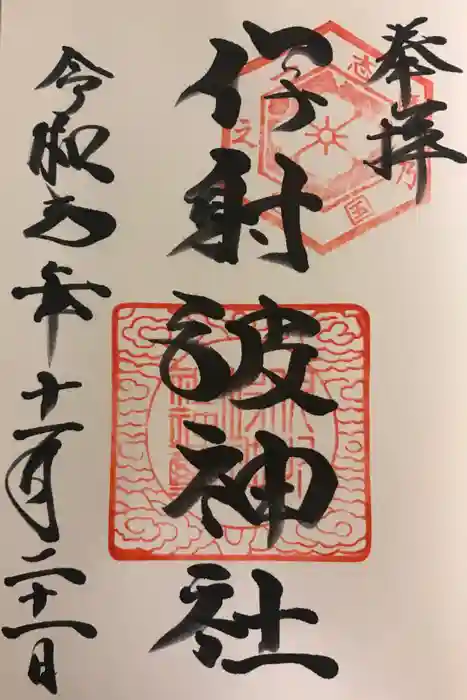 奉拝
伊射波神社
令和元年十一月二十一日
志
乃
国
之